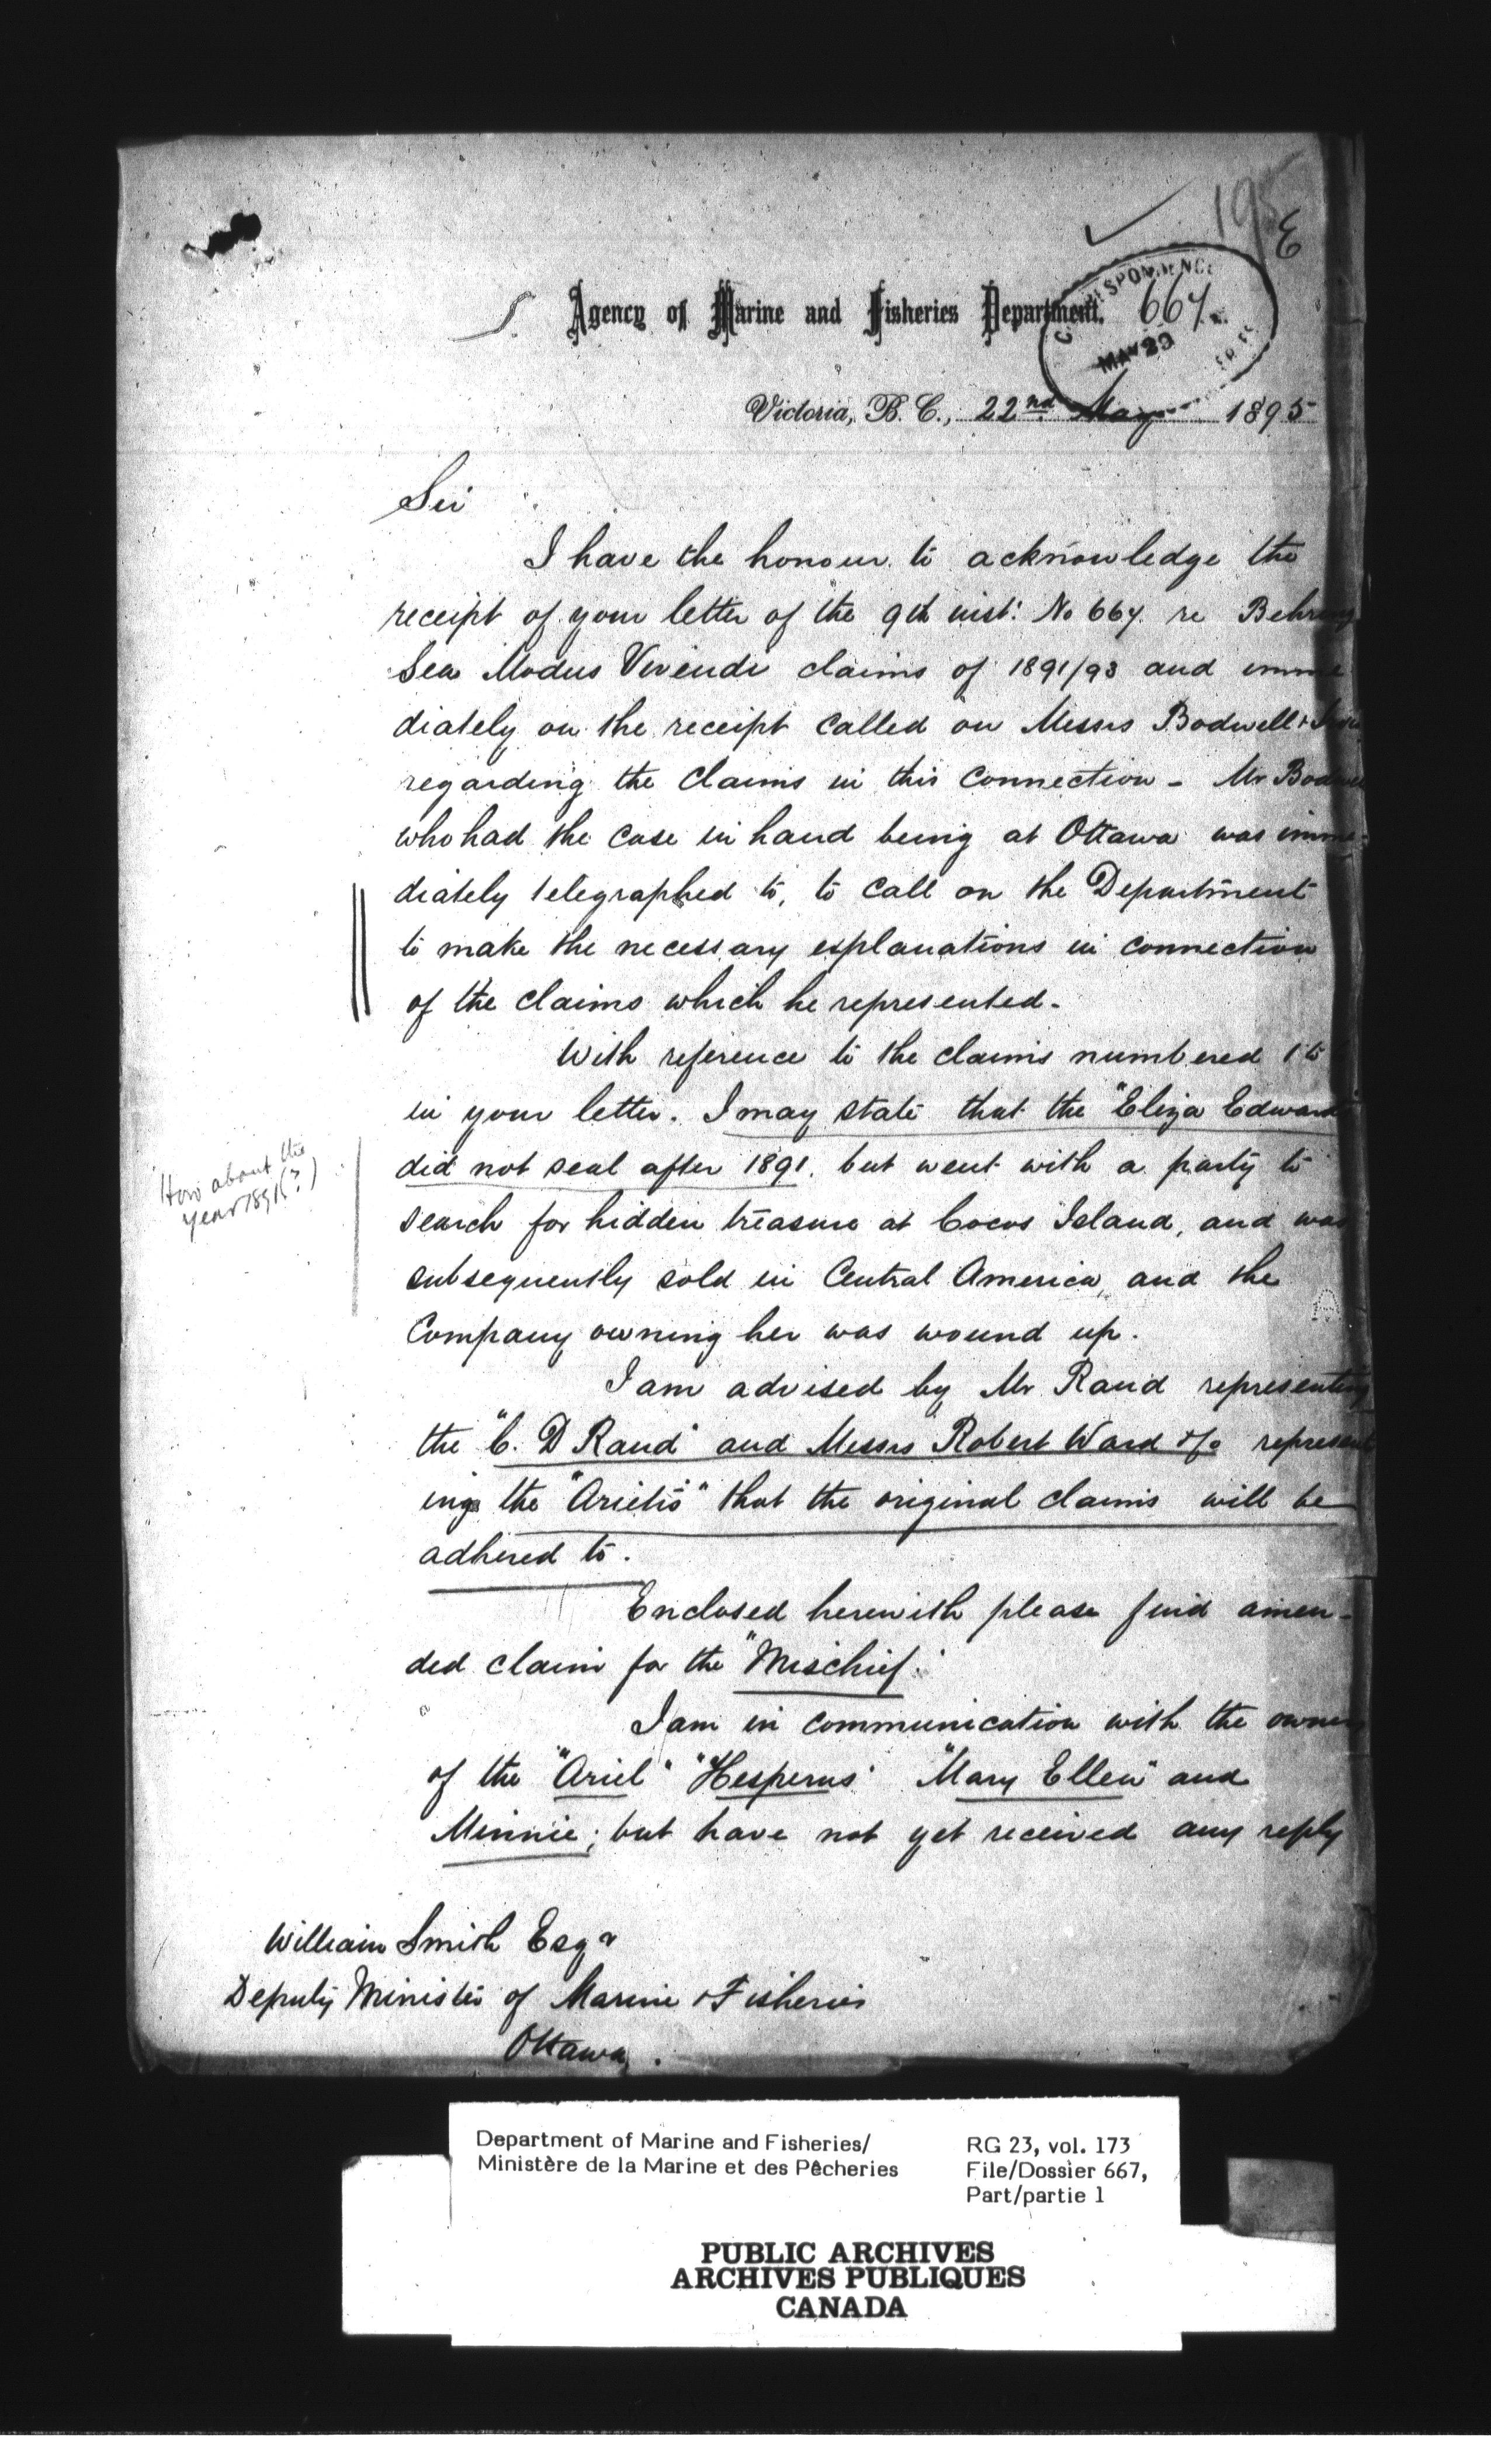 195
E
CORRESPONDENCE
667
MAY 29
Agency of Marine and Fisheries Department.
Victoria, B. C., 22nd May 1895
Sir
I have the honour to acknowledge the
receipt of your letter of the 9th inst: No 667. re Behring
Sea Modus Vivendi claims of 1891/93 and imme
diately on the receipt called on Messrs Bodwell &
regarding the claims in this connection - Mr Bodwell
who had the case in hand being at Ottawa was imme-
diately telegraphed to, to call on the Department
to make the necessary explanations in connection
of the claims which he represented.
With reference to the claims numbered 1 to
in your letter. I may state that the "Eliza Edwards"
did not seal after 1891. but went with a party to
search for hidden treasure at Cocos Island, and was
subsequently sold in Central America, and the
Company owning her was wound up.
How about the
year 1891(?)
I am advised by Mr Rand representing
the "C. D Rand" and Messrs Robert Ward & Co represent
ing the "Arietis" that the original claims will be
adhered to.
Enclosed herewith please find amen-
ded claim for the "Mischief."
I am in communication with the owners
of the "Ariel" "Hesperus" "Mary Ellen" and
Minnie; but have not yet received any reply
William Smith Esqr
Deputy Minister of Marine & Fisheries
Ottawa.
Department of Marine and Fisheries/
Ministère de la Marine et des Pêcheries
RG 23, vol. 173
File/Dossier 667,
Part/partie 1
PUBLIC ARCHIVES
ARCHIVES PUBLIQUES
CANADA